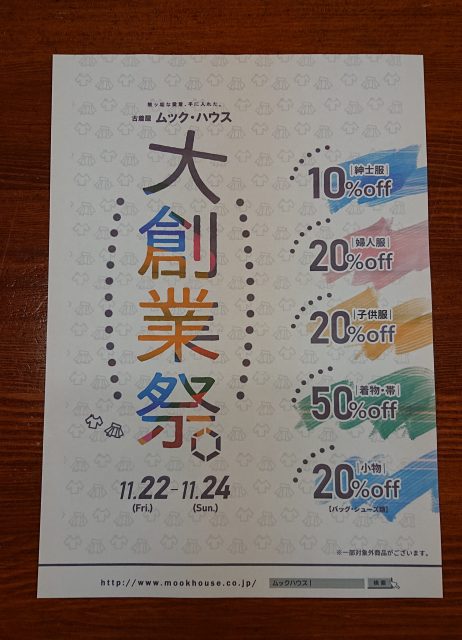 古着屋 ムック・ハウス
大創業祭。
11.22-11.24
(Fri.) (Sun.)
[紳士服]
10%off
[婦人服]
20%off
[子供服]
20%off
[着物・帯]
50%off
[小物]
20%off
【バッグ・シューズ類】
※一部対象外商品がございます。
http://www.mookhouse.co.jp/ ムックハウス! 検索